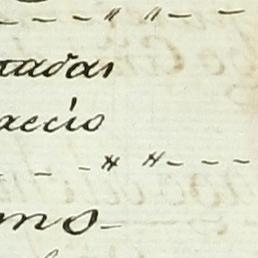 - - - " " - -
tadas
accio
- - - " " - - -
mo-